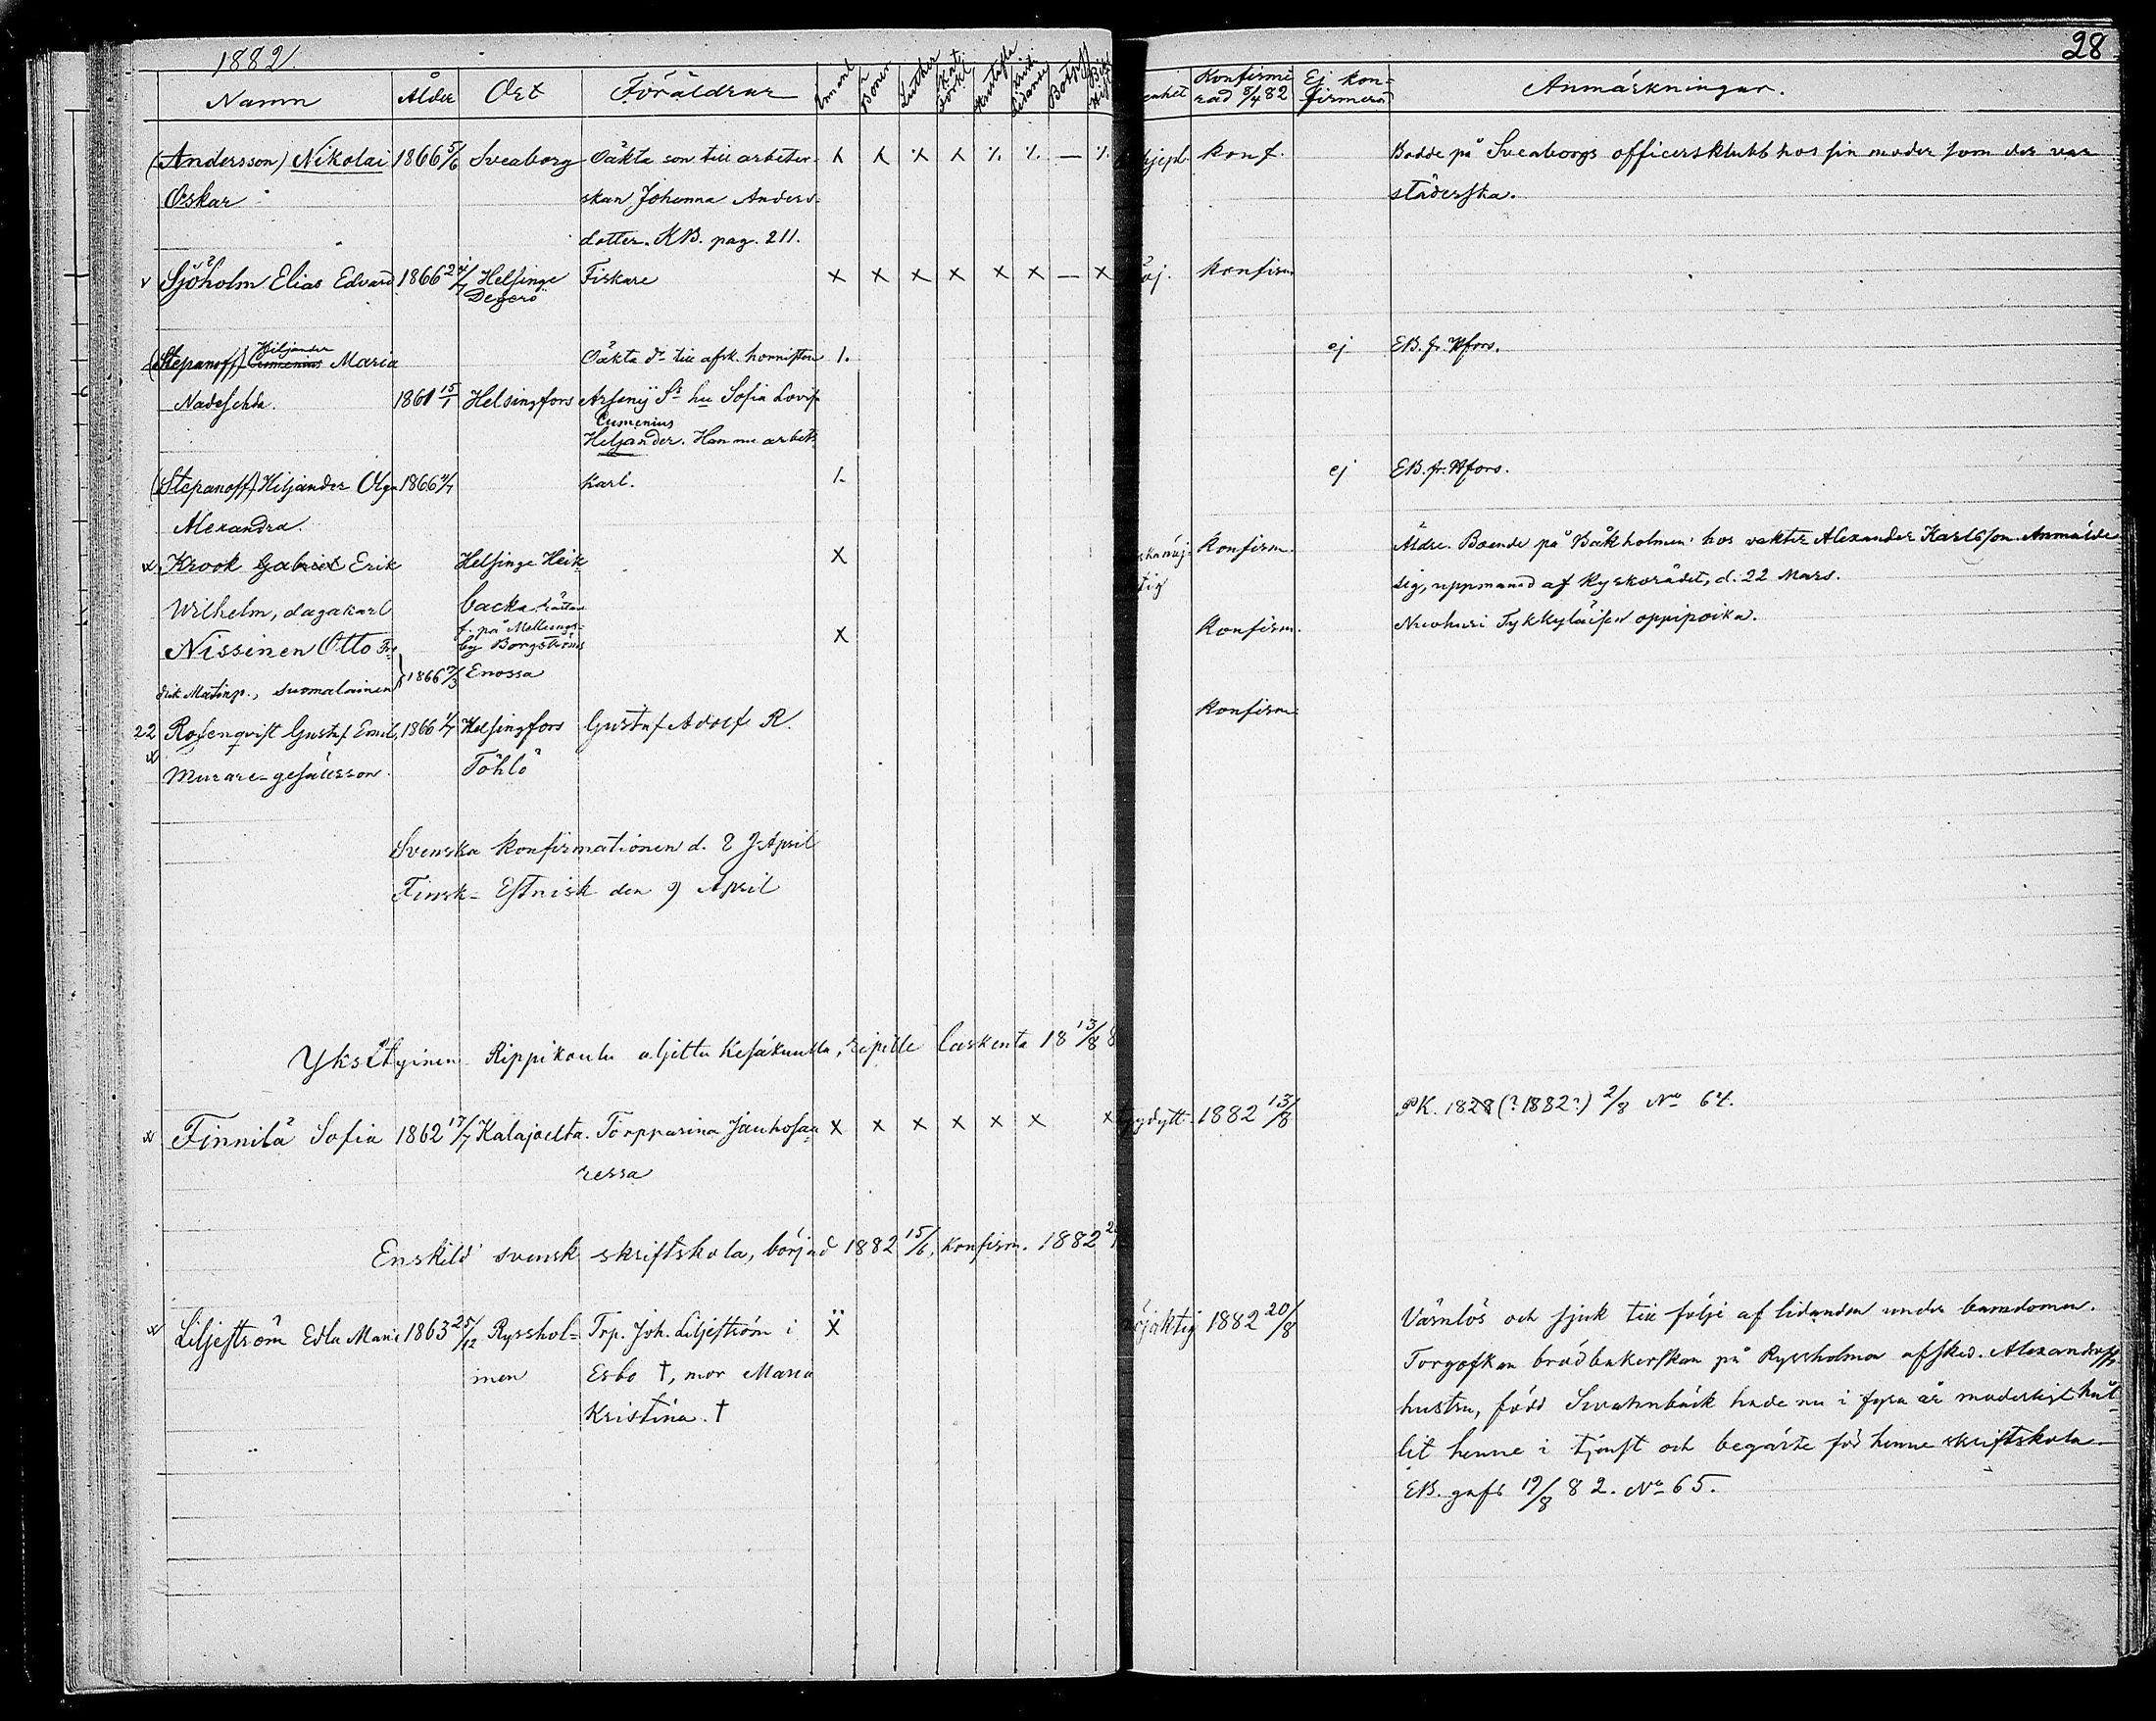 1882
28
Namn Ålder Ort Föräldrar Bönen Luther Botps
Konfirme Ej kon=
rad 8/4 82 firmerad Anmärkningar.
(Andersson) Nikolai 1866 5/6 Sveaborg Oäkta son till arbeter- x x x x ٪ ٪ — ٪ hjepl konf. Bodde på Sveaborgs officersklubb hos sin moder som der var
Oskar skan Johanna Anders- städerska.
dotter. KB. pag. 211.
v Sjöholm Elias Edvard 1866 Helsinge Fiskare x x x x x x — x konfirm
Degerö
(Stepanoff) Hiljander Cumenius Maria Oäkta dr till afsk. hornisten 1. ej EB. fr. Hfors.
Nadeschda. 1861 15/1 Helsingfors Arsenij St hu Sofia Lovisa
Cumenius
Heljander. Han nu arbets
(Stepanoff) Hiljander Olga 1866 karl. 1. ej EB. fr. Hfors.
Alexandra.
Krook Gabriel Erik Helsinge Heik X Konfirm. Äldre. Boende på Båkholmen hos vakter Alexander Karlsson. Anmälde
Wilhelm, dagakarl backa sig, uppmanad af Kyrkorådet, d. 22 Mars.
f. på Mellungs-
Nissinen Otto Fre by Borgströms X Konfirm. Nuohuri Tykkyläisen oppipoika.
drik Matinp., suomalainen 1866 7/3 Enossa
22 Rosenqvist Gustaf Emil, 1866 1/7 Helsingfors Gustaf Adolf R. Konfirm
Murare-gesällsson. Töhlö
Svenska Konfirmationen d. 8 April
Finsk- Estnisk den 9 April
Yksityinen Rippikoulu aljettu Kesäkuulla, ripille laskenta 18 13/8 8
Finnilä Sofia 1862 17/7 Kalajoelta. Torpparina Jauhosaa- x x x x x x x tyydytt. 1882 13/8 PK. 1828 (? 1882?) 2/8 No 64.
ressa
Enskild svensk skriftskola, börjad 1882 15/6, Konfirm. 1882 2
Liljeström Edla Maria 1863 25/12 Rysshol= Trp. Joh. Liljeström i Ẍ nöjaktig 1882 20/8 Värnlös och sjuk till följe af lidanden under barndomen.
men Esbo †, mor Maria Torgofkan brödbakerskan på Ryssholmen afsked. Alexandroffs
Kristina. † hustru, född Svahnbäck hade nu i fyra år moderligt hål-
lit henne i tjenst och begärte för henne skriftskola
EB. gafs 19/8 82. No 65.